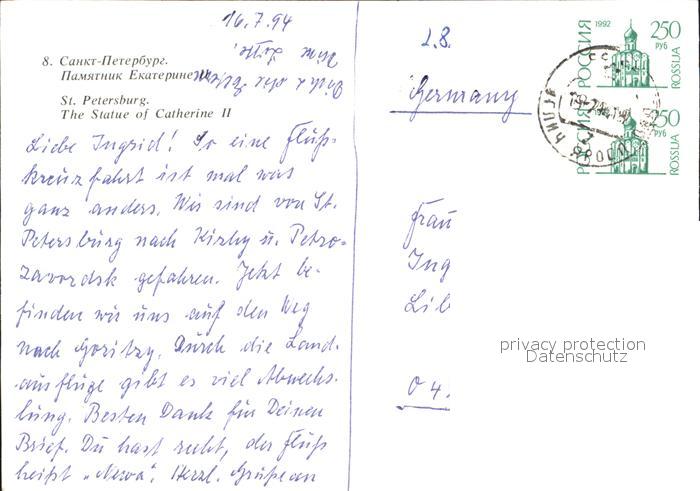 16.7.94
8. Санкт-Петербург.
Памятник Екатерине II
St. Petersburg.
The Statue of Catherine II
Liebe Ingrid! So eine Fluß-
kreuzfahrt ist mal was
ganz anders. Wir sind von St.
Petersburg nach Kizhy u. Petro-
zavordsk gefahren. Jetzt be-
finden wir uns auf den Weg
nach Goritzy. Durch die Land-
ausflüge gibt es viel Abwechs-
lung. Besten Dank für Deinen
Brief. Du hast recht, der Fluß
heißt „Newa". Herzl. Grüße an
2.8.
Germany
Frau
Ing
Lil
O 4.
РОССИЯ 1992 250 РУБ ROSSIJA
РОССИЯ 250 РУБ ROSSIJA
privacy protection
Datenschutz